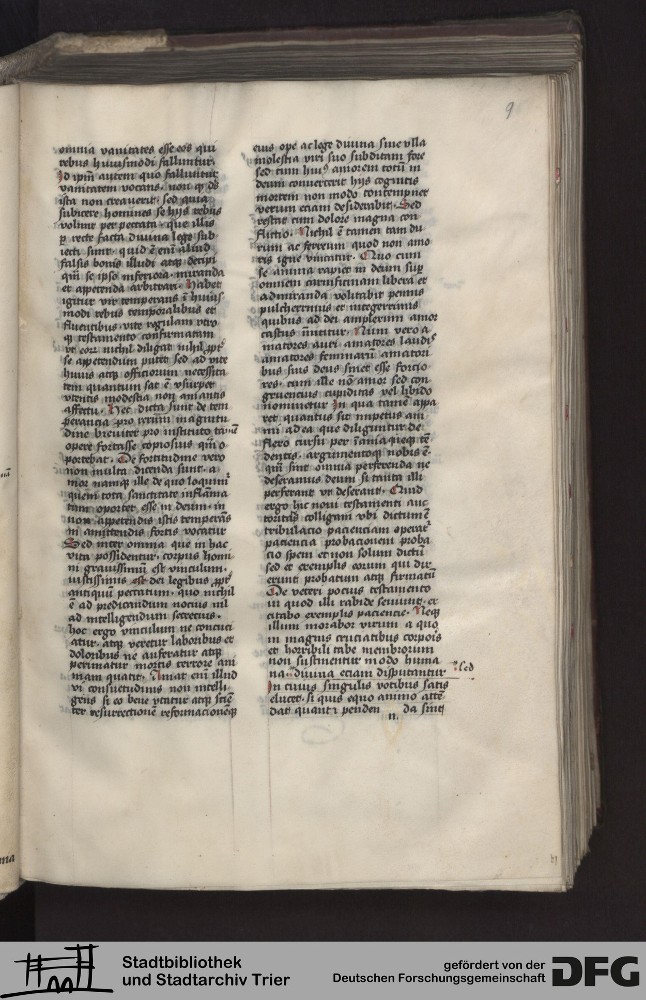 9
omnia vanitates esse eos qui
rebus huiusmodi falluntur.
Id ipm̄ autem quo falluntur
vanitatem vocans. non qꝫ ds̄
ista non creauerit. sed quia
subicere homines se hijs rebus
volunt per peccata. que illis
ꝑ recte facta diuina lege sub
iecti sunt. quid ē enī aliud
falsis bonis illudi atqꝫ decipi
qm̄ se ipso inferiora. miranda
et appetenda arbitrari. Habet
igitur vir temperans ī huius
modi rebus temporalibus et
fluentibus. vite regulam vtro
qꝫ testamento confirmatam
vt eorū nichil diligat nihil ꝓpt̄
se appetendum putet sed ad vite
huius atqꝫ officiorum necessita
tem quantum sat ē vsurpet
vtentis modestia non amantis
affectu. Hec dicta sunt de tem
perancia pro rerum magnitu
dine breuiter pro instituto tamē
opere fortasse copiosius qm̄ o
portebat. De fortitudine vero
non multa dicenda sunt. a
mor namqꝫ ille de quo loquimur
quem tota sanctitate inflāma
tum oportet esse in deum. in
non appetendis istis temperās
in amittendis fortis vocatur
Sed inter omnia que in hac
vita possidentur. corpus homi
ni grauissimū est vinculum.
iustissimis est dei legibus ꝓpt̄
antiquū peccatum. quo nichil
ē ad predicandum nocius nil
ad intelligendum secretius.
hoc ergo vinculum ne concuci
atur. atqꝫ vexetur laboribus et
doloribus ne auferatur atqꝫ
perimatur mortis terrore ani
mam quatit. Amat enī illud
vi consuetudinis non intelli
gens si eo bene vtatur atqꝫ sciē
ter resurrectionē reformacionēqꝫ
eius ope ac lege diuina sine vlla
molestia iuri suo subditam fore
sed cum huiꝰ amorem totū in
deum conuerterit hijs cognitis
mortem non modo contempnet
verum eciam desiderabit. Sed
restat cum dolore magna con
flictio. Nichil ē tamen tam du
rum ac ferreum quod non amo
ris igne vincatur. Quo cum
se anima rapiet in deum suꝑ
omnem carnificinam libera et
admiranda volitabit pennis
pulcherrimis et integerrimis
quibus ad dei amplexum amor
castus innititur. Num vero a
matores auri amatores laudis
amatores feminarū amatori
bus suis deus sinet esse forcio
res. cum ille nō amor sed con
gruencius cupiditas vel libido
nominetur In qua tamē appa
ret quantus sit impetus ani
mi ad ea que diliguntur
flexo cursu per īmania queqꝫ tē
dentis. argumentoqꝫ nobis ē
qm̄ sint omnia perferenda ne
deseramus deum si tanta illi
perferunt vt deserant. Quid
ergo hic noui testamenti auc
toritates colligam vbi dictum ē
tribulacio pacienciam operat̄
paciencia probacionem proba
cio spem et non solum dictū
sed et exemplis eorum qui dix̄
erunt probatum atqꝫ firmatū
De veteri pocius testamento
in quod illi rabide seuiunt. ex
citabo exemplis paciencie. Neqꝫ
illum morabor virum a quo
in magnis cruciatibus corporis
et horribili tabe membrorum
non sustinentur modo huma
na. diuina eciam disputantur sed
In cuius singulis vocibus satis
elucet. si quis equo animo attē
dat quanti penden da sint
n.
81
Stadtbibliothek
und Stadtarchiv Trier
gefördert von der
Deutschen Forschungsgemeinschaft
DFG